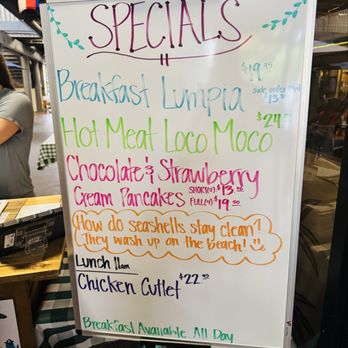 SPECIALS
Breakfast Lumpia $19.95
Side order
Hot Meat Loco Moco
Chocolate & Strawberry
Cream Pancakes SHORT(2) $13.95
FULL(4) $19.95
How do seashells stay clean?
They wash up on the Beach!
Lunch 11am
Chicken Cutlet $22.95
Breakfast Available All Day